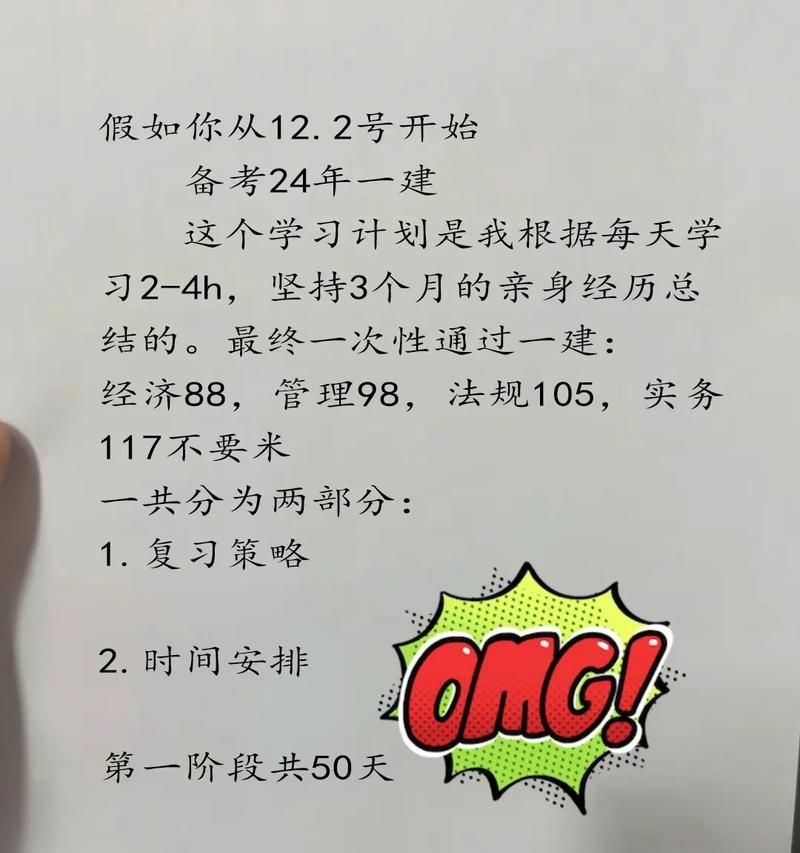 假如你从12.2号开始
备考24年一建
这个学习计划是我根据每天学
习2-4h，坚持3个月的亲身经历总
结的。最终一次性通过一建：
经济88，管理98，法规105，实务
117不要米
一共分为两部分：
1.复习策略
2.时间安排
OMG!
第一阶段共50天